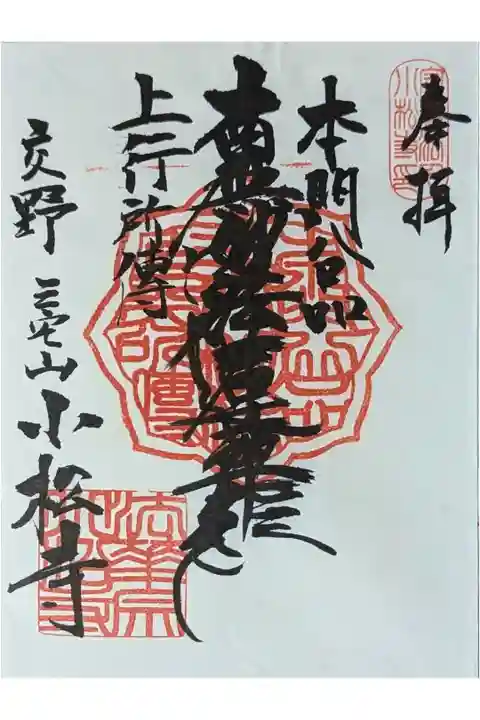 奉拝
本門八品
南無妙法蓮華経
上行所傳
交野 三宅山 小松寺
法華宗
小松寺